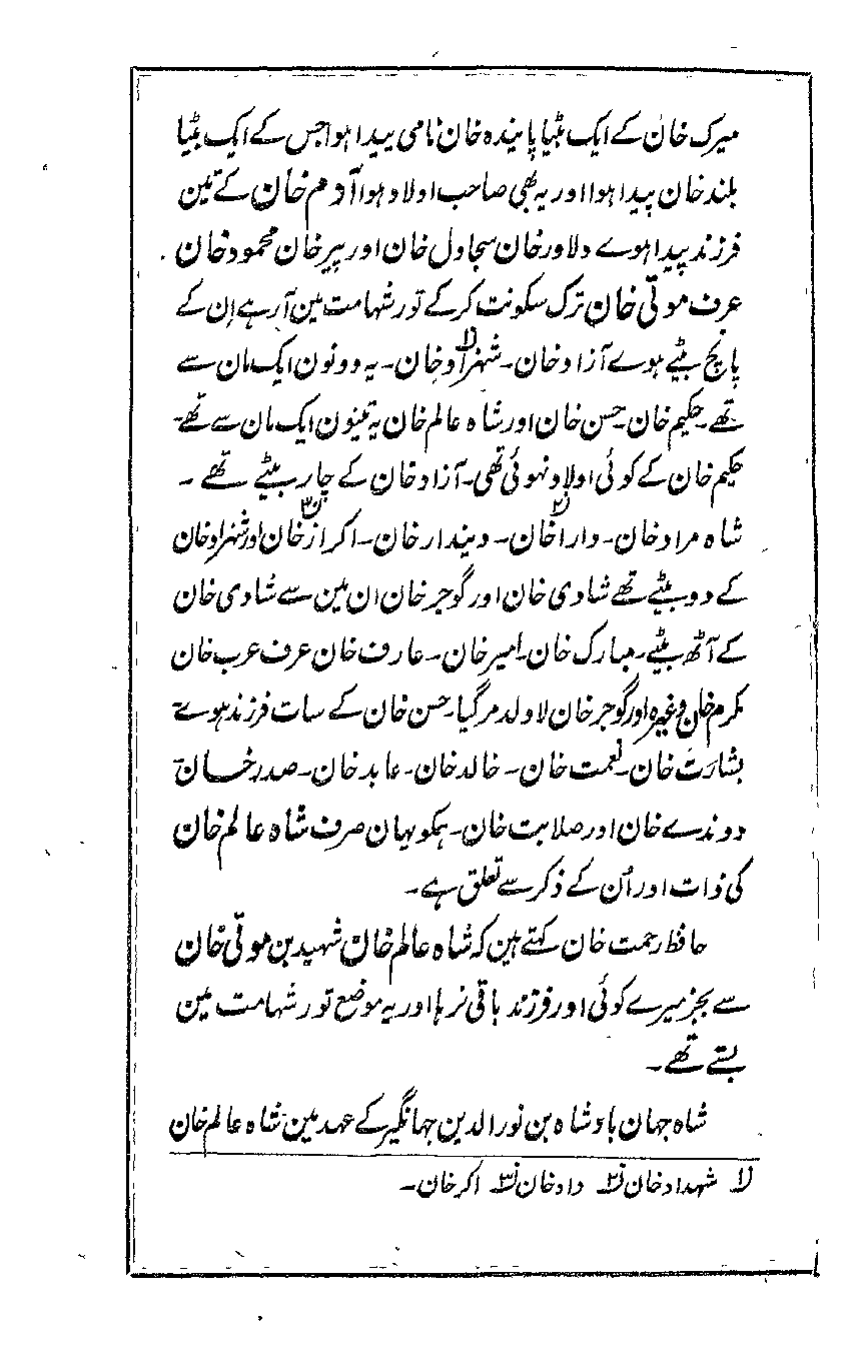 میرک خان کے ایک بٹیا پایندہ خان نامی پیدا ہوا جس کے ایک بٹیا
بلند خان پیدا ہوا اور یہ بھی صاحب اولاد ہوا آدم خان کے تین
فرزند پیدا ہوے دلاور خان سجاول خان اور پیر خان محمود خان
عرف موتی خان ترک سکونت کر کے تور شہامت مین آرہے اِن کے
پانچ بیٹے ہوے آزاد خان۔ شہزاد خان۔ یہ دونون ایک مان سے
تھے۔ حکیم خان۔ حسن خان اور شاہ عالم خان یہ تینون ایک مان سے تھے۔
حکیم خان کے کوئی اولاد نہوئی تھی۔ آزاد خان کے چار بیٹے تھے ۔
شاہ مراد خان۔ دارا خان۔ دیندار خان۔ اکراز خان اور شہزاد خان
کے دو بیٹے تھے شادی خان اور گوجر خان ان مین سے شادی خان
کے آٹھ بیٹے۔ مبارک خان۔ امیر خان۔ عارف خان عرف عرب خان
مکرم خان وغیرہ اور گوجر خان لا ولد مر گیا۔ حسن خان کے سات فرزند ہوے
بشارت خان۔ نعمت خان۔ خالد خان۔ عابد خان۔ صدر خان
دوندے خان اور صلابت خان۔ ہمکو یہان صرف شاہ عالم خان
کی ذات اور اُن کے ذکر سے تعلق ہے۔
حافظ رحمت خان کہتے ہین کہ شاہ عالم خان شہید بن موتی خان
سے بجز میرے کوئی اور فرزند باقی نرہا اور یہ موضع تور شہامت مین
بستے تھے۔
شاہ جہان بادشاہ بن نور الدین جہانگیر کے عہد مین شاہ عالم خان
شہداد خان داد خان اکر خان۔